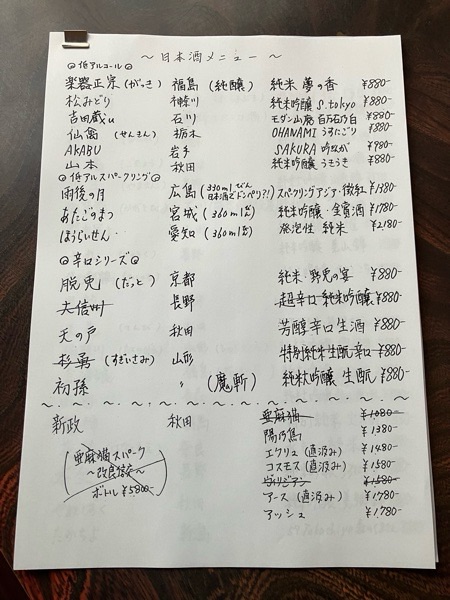 ～日本酒メニュー～
◎低アルコール◎
楽器正宗(がっき) 福島(純醸) 純米 夢の香 ¥880-
松みどり 神奈川 純米吟醸 S.tokyo ¥880-
吉田蔵u 石川 モダン山廃 百万石乃白 ¥880-
仙禽(せんきん) 栃木 OHANAMI うすにごり ¥880-
AKABU 岩手 SAKURA 吟ぎんが ¥780-
山本 秋田 純米吟醸 うきうき ¥880-
◎低アルスパークリング◎
雨後の月 広島(330mlびん 日本酒でドンペリ?!) スパークリングアジア・微紅 ¥1380
あたごのまつ 宮城(360mlびん) 純米吟醸・鑑賞酒 ¥1780
ほうらいせん 愛知(360mlびん) 発泡性 純米 ¥2180-
◎辛口シリーズ◎
脱兎(だっと) 京都 純米 野兎の宴 ¥880-
大信州 長野 超辛口 純米吟醸 ¥880-
天の戸 秋田 芳醇辛口生酒 ¥880-
杉勇(すぎいさみ) 山形 特別純米生酛辛口 ¥880-
初孫 〃 (魔斬) 純米吟醸 生酛 ¥880-
新政 秋田 亜麻猫 ¥1080-
陽乃鳥 ¥1380
エクリュ(直汲み) ¥1480-
コスモス(直汲み) ¥1580
ヴィリジアン ¥1580-
アース(直汲み) ¥1780
アッシュ ¥1780-
亜麻猫スパーク
～改良信交～
ボトル ¥5800-